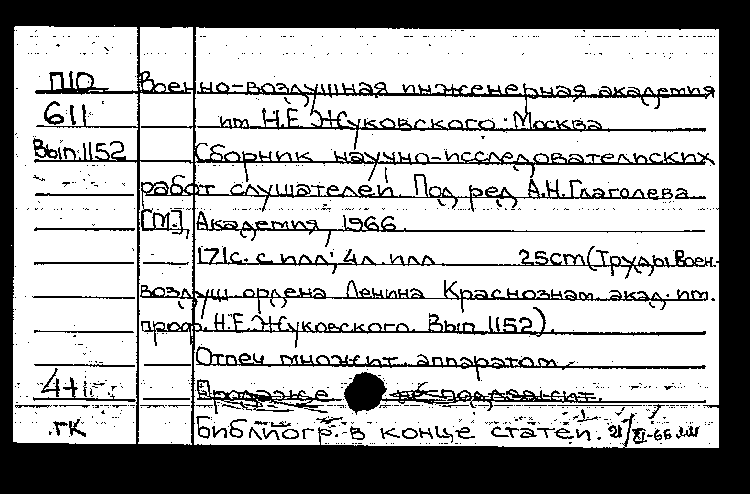 П10 Военно-воздушная инженерная академия
611 им. Н.Е.Жуковского. Москва.
Вып.1152 Сборник научно-исследовательских
работ слушателей. Под ред. А.Н.Глаголева.
[М.], Академия, 1966.
171с. с илл; 4л. илл 25см (Труды Воен.-
воздуш. ордена Ленина Краснознам. акад. им.
проф. Н.Е.Жуковского. Вып. 1152).
Отпеч. множит. аппаратом.
4+1 Продаже не подлежит.
гк Библиогр. в конце статей. 21/XI-66